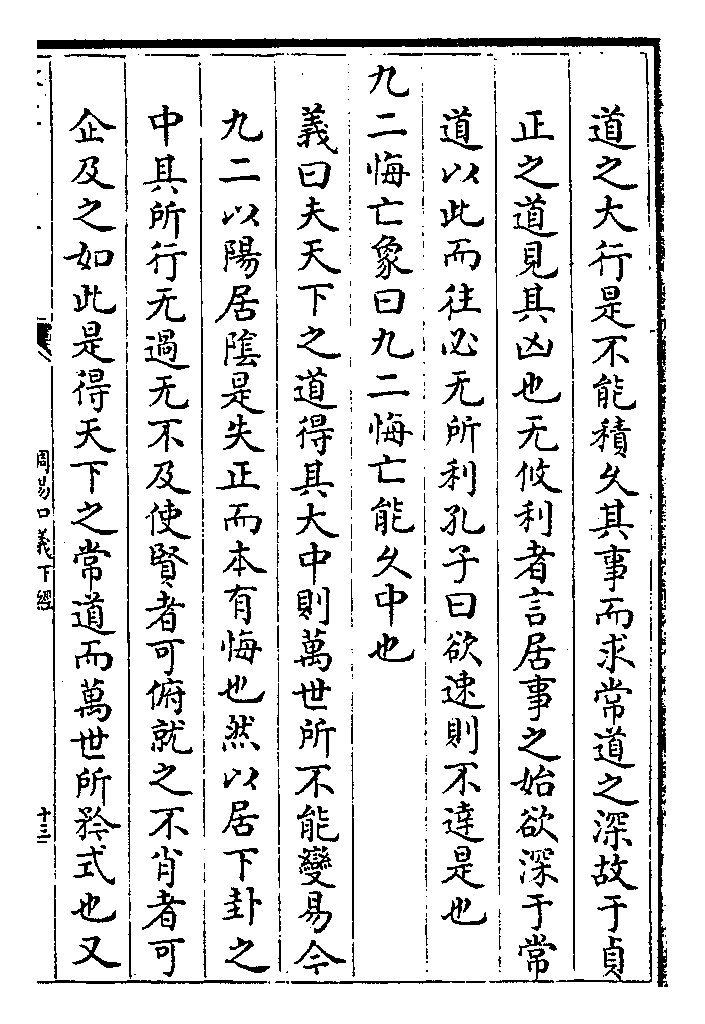 道之大行是不能積久其事而求常道之深故于貞
正之道見其凶也无攸利者言居事之始欲深于常
道以此而往必无所利孔子曰欲速則不達是也
九二悔亡象曰九二悔亡能久中也
義曰夫天下之道得其大中則萬世所不能變易今
九二以陽居隂是失正而本有悔也然以居下卦之
中其所行无過无不及使賢者可俯就之不肖者可
企及之如此是得天下之常道而萬世所矜式也又
周易口義下經
十三